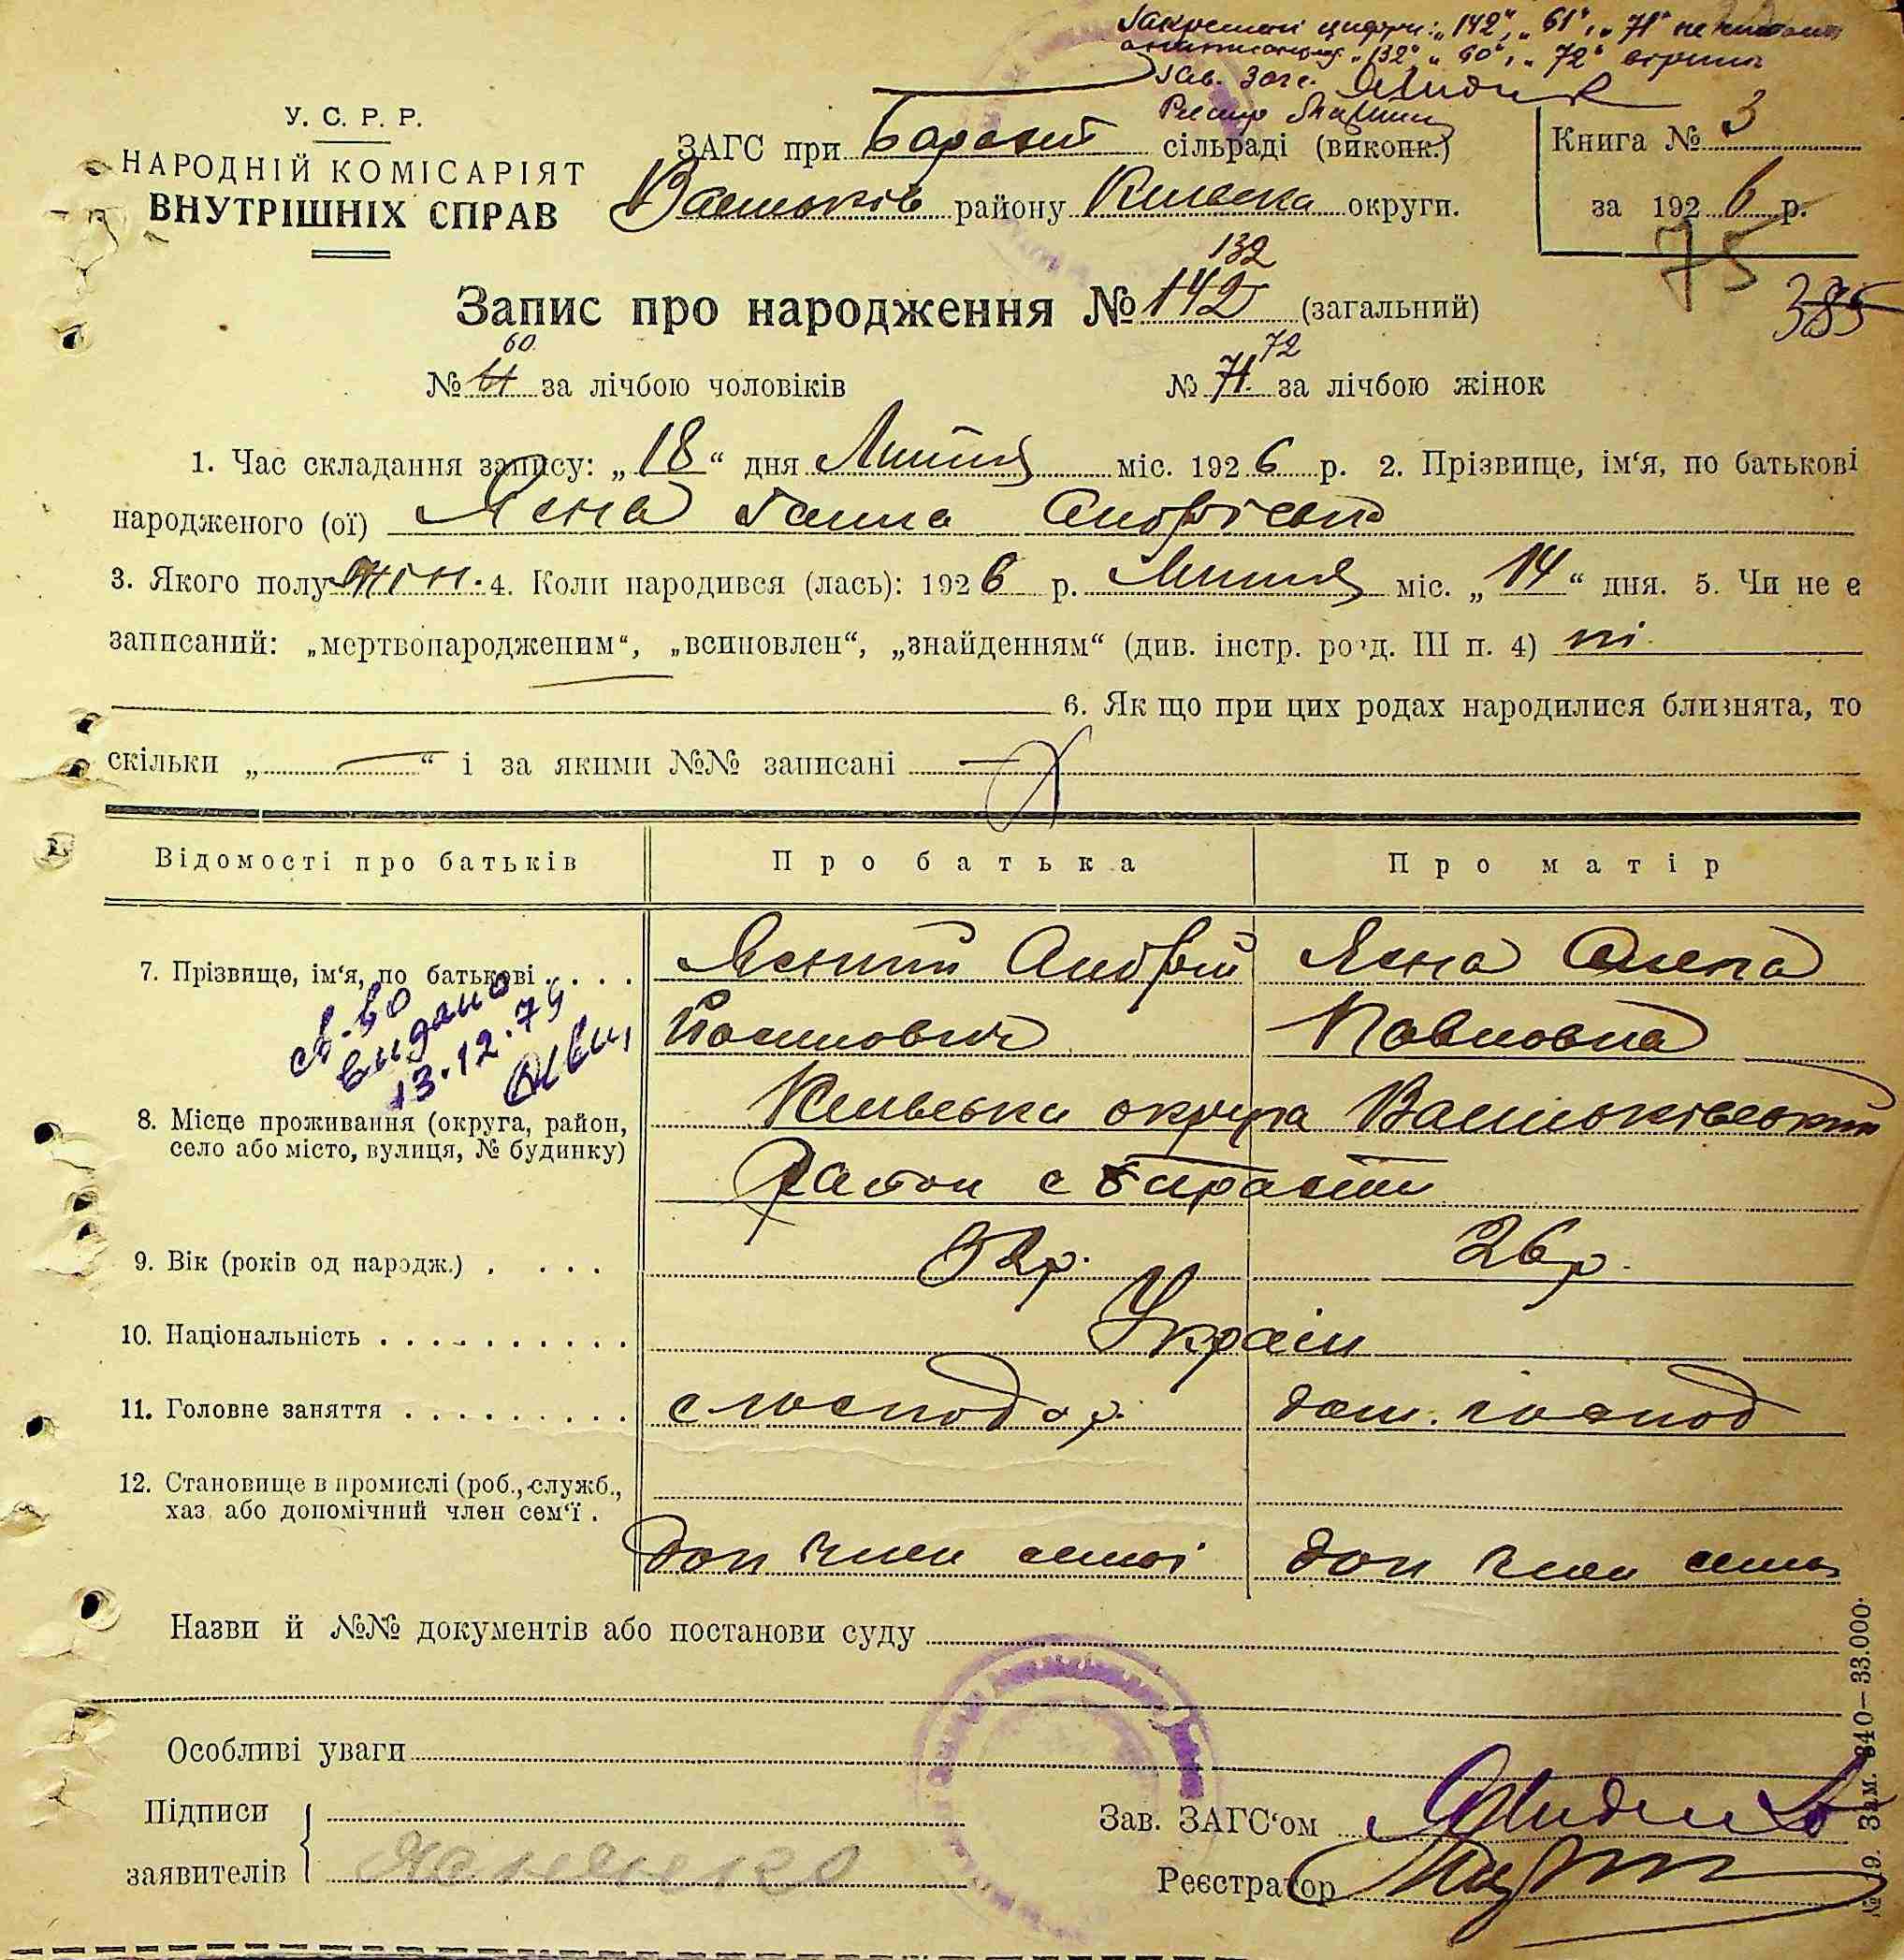 Закреслені цифри: „142“, „61“, „71“ не
„132“, „60“, „72“ вірити
Зав. Загс.
У. С. Р. Р.
НАРОДНІЙ КОМІСАРІЯТ
ВНУТРІШНІХ СПРАВ
ЗАГС при сільраді (виконк.)
Васильків району Київська округи.
Книга № 3
за 1926 р.
75
385
132
Запис про народження № 142 (загальний)
60 72
№ 61 за лічбою чоловіків № 71 за лічбою жінок
1. Час складання запису: „18“ дня Липня міс. 1926 р. 2. Прізвище, ім‘я, по батькові
народженого (ої) Ясна Ганна Андріевна
3. Якого полу жін. 4. Коли народився (лась): 1926 р. Липня міс. „14“ дня. 5. Чи не є
записаний: „мертвонародженим“, „всиновлен“, „знайденням“ (див. інстр. розд. III п. 4) ні.
6. Як що при цих родах народилися близнята, то
скільки „ — “ і за якими №№ записані —
Відомості про батьків Про батька Про матір
7. Прізвище, ім‘я, по батькові . . . . Ясний Андрій Ясна Олена
Павловна
св-во
видано
13.12.75
8. Місце проживання (округа, район, село або місто, вулиця, № будинку) Київська округа Васильківський
Район с
9. Вік (років од народж.) . . . . 32р. 26р.
10. Національність . . . . . . . . . . Україн
11. Головне заняття . . . . . . . . . дом. господ
12. Становище в промислі (роб., служб.,
хаз. або допомічний член сем‘ї .
доп член семьі доп член семьі
Назви й №№ документів або постанови суду
Особливі уваги
Підписи
заявителів
Зав. ЗАГС‘ом
Реєстратор
№ 19. Зам. 840—33.000.